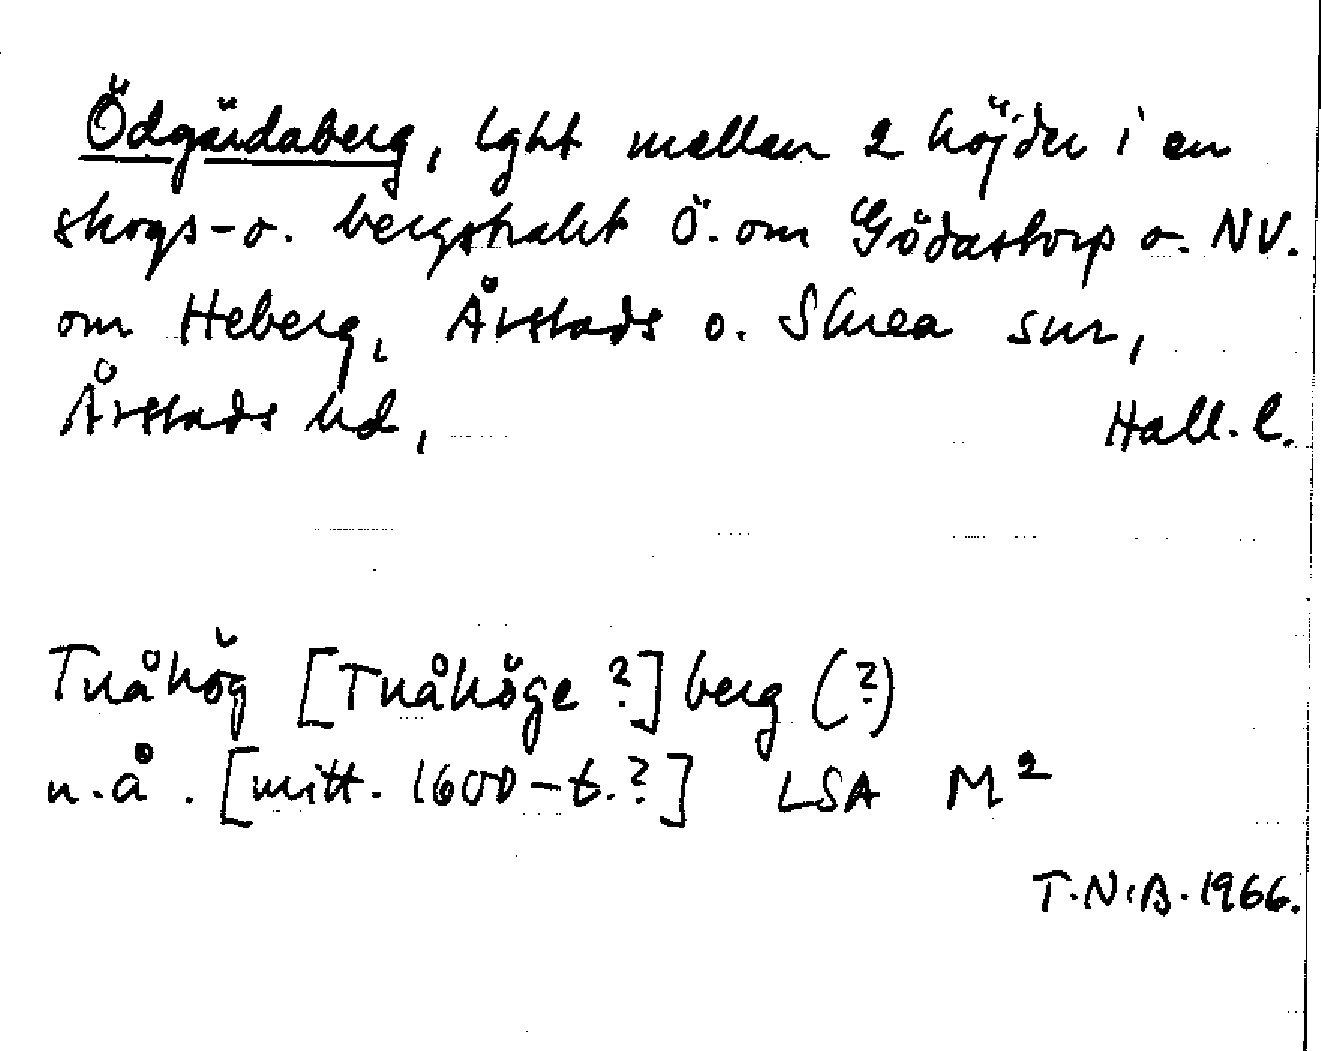 Ödgärdaberg, lght mellan 2 höjder i en
skogs- o. bergstrakt Ö. om Gödastorp o. NV.
om Heberg, Årstads o. Skrea snr,
Årstads hd, Hall. l.
Tuåhög [Tuåhöge ?] berg (?)
u. å. [mitt. 1600-t. ?] LSA M²
T.N.B. 1966.